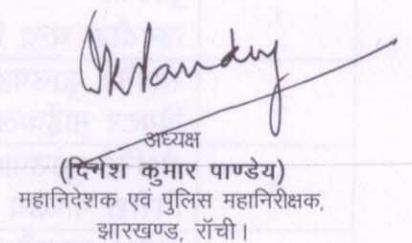 DKPandey
अध्यक्ष
(दिनेश कुमार पाण्डेय)
महानिदेशक एवं पुलिस महानिरीक्षक,
झारखण्ड, रॉची।